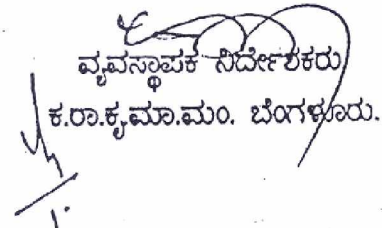 ವ್ಯವಸ್ಥಾಪಕ ನಿರ್ದೇಶಕರು
ಕ.ರಾ.ಕೃ.ಮಾ.ಮಂ. ಬೆಂಗಳೂರು.